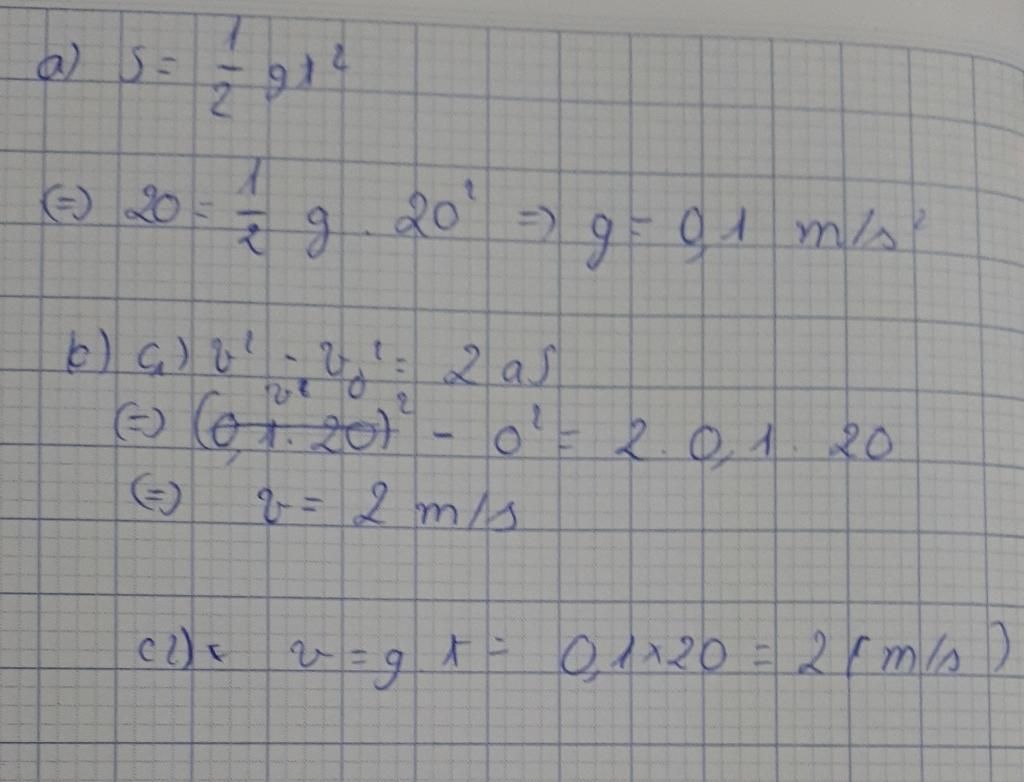 a) S = 1/2 gt²
(=) 20 = 1/2 g . 20² => g = 0,1 m/s²
b) C₁) v² - v₀² = 2aS
(=) v² - 0² = 2. 0,1 . 20
(=) v = 2 m/s
C2) v = g t = 0,1 x 20 = 2 (m/s)